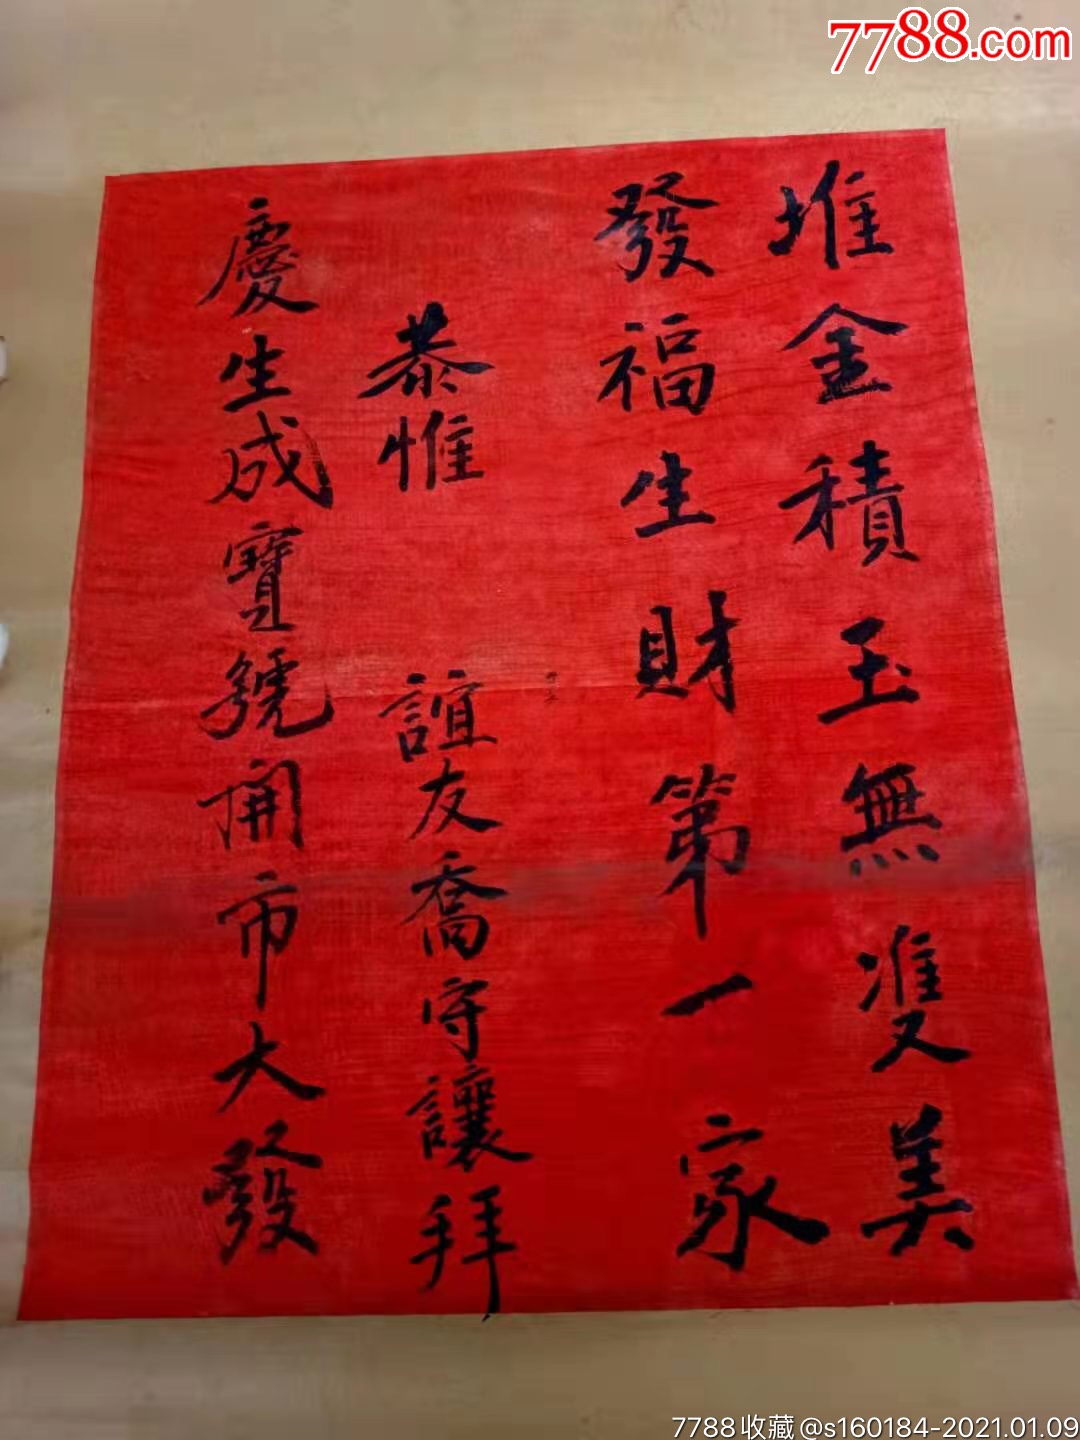 7788.com
堆金積玉無雙美
發福生財第一家
恭惟 誼友喬守讓拜
慶生成寶號開市大發
7788收藏@s160184-2021.01.09